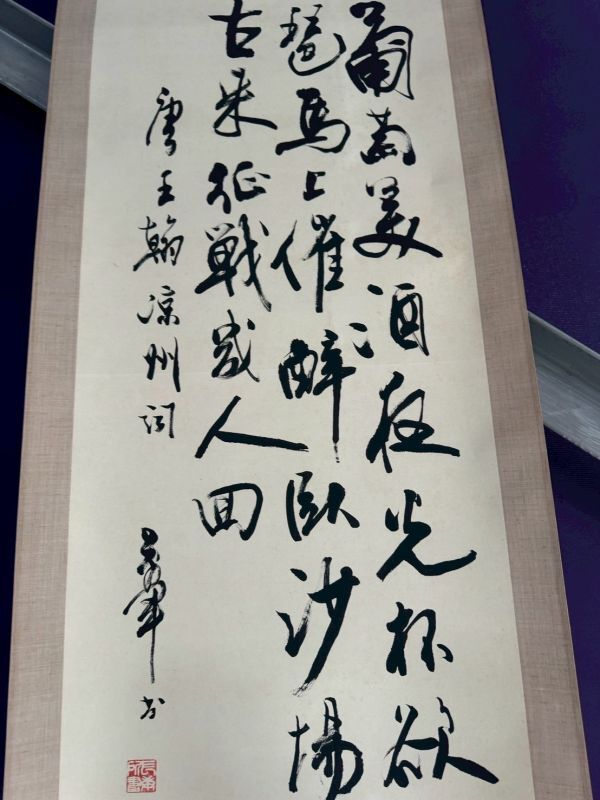 葡萄美酒夜光杯欲
琶馬上催醉臥沙場
古來征戰幾人回
唐王翰涼州詞
书